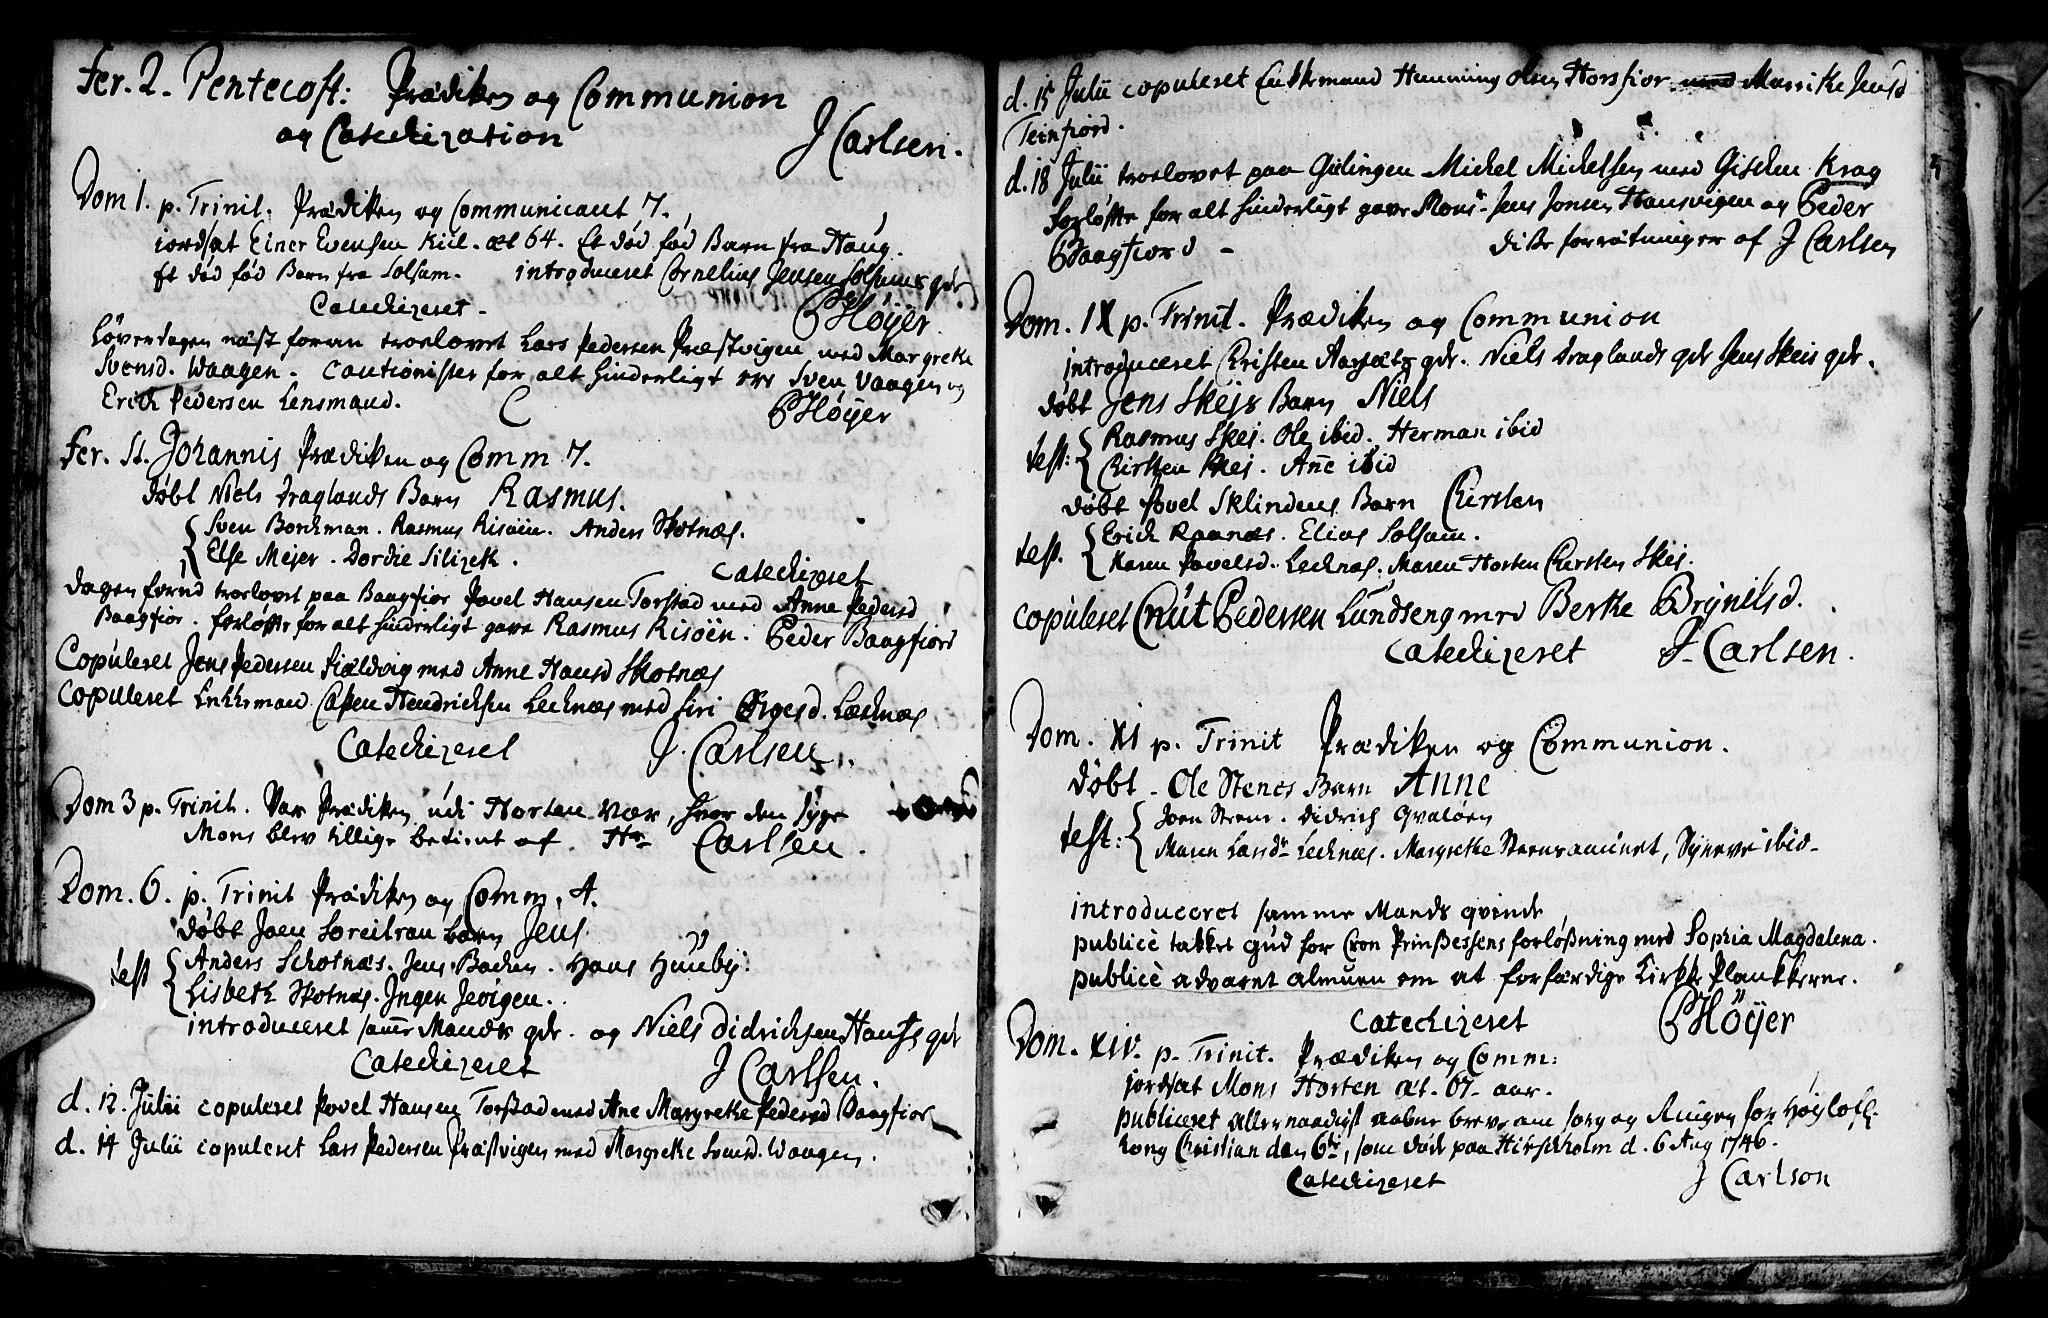 Fer. 2. Pentecost: Prædiken og Communion
og Catechization
J Carlsen.
Dom 1. p. Trinit. Prædiken og Communicant 7.
jordsat Einer Evensen Kiil. æt 64. Et død fød Barn fra Haug.
Et død fød Barn fra Solsem. introduceret Cornelius Jensen Solsems qde
Catechizeret.
P Høÿer.
Løverdagen næst forum troelovet Lars Pedersen Præstvigen med Margrethe
Svensd. Waagen. Cautionister for alt hinderligt ere Sven Vaagen og
Erich Pedersen Lensmand.
P Høÿer
Fer. St. Johannis Prædiken og Comm 7.
døbt Niels Draglands Barn Rasmus.
Sven Borchman. Rasmus Risøen. Anders Skotnæs.
Else Mejer. Dordie Silizek.
Catechizeret
dagen forud troelovet paa Baagfior Povel Hansen Torstad med Anne Pedersd
Baagfior. forløfte for alt hinderligt gave Rasmus Risøen. Peder Baagfiord
Copuleret Jens Pedersen Siældvig med Anne Hansd Skotnæs
Copuleret Enkkemand Casten Hendrichsen Lecknæs med Siri Lecknæs
Catechizeret J. Carlsen.
Dom 3 p. Trinit. Var Prædiken udi Horten vær, hvor den syge
Mons blev tillige betient af Hr Carlsen.
Dom. 6. p. Trinit Prædiken og Comm. 4.
døbt Joen barn Jens
test Anders Schotnæs. Jens Bachen. Hans Huuby:
Lisbeth Skotnæs. Ingen Jevigen.
introduceret samme Mands qde. og Niels Didrichsen Hans qde
Catechizeret J Carlsen.
d. 12. Julii copuleret Povel Hansen Torstad med Ane Margrethe Pedersd Baagfior
d. 14 Julii copuleret Lars Pedersen Præstvigen med Margrethe Svensd. Waagen.
d. 15 Julii copuleret Enkkemand Henning Olsen Horsfior med Marrithe Jensd
Teinfiord.
d. 18 Julii troelovet paa Gutingen Michel Michelsen med Gisken Krag
forløfte for alt hinderligt gave Monsr Jens Jonsen Hansvigen og Peder
Baagfiord - diße forrætninger af J Carlsen
Dom. IX p. Trinit. Prædiken og Communion
introduceret Christen Aarsæts qde. Niels Draglands qde Jens Skeis qde.
døbt Jens Skejs Barn Niels
test: Rasmus Skej. Ole ibid. Herman ibid
Chirsten Skej. Anne ibid
døbt Povel Sklindens Barn Chersten
test. Erich Raanæs. Elias Solsem.
Karen Povelsd. Lecknæs. Maren Horten Chersten Skej.
copuleret Cnut Pedersen Lundseng med Berthe Brÿnilsd.
Catechizeret J. Carlsen.
Dom. XI p. Trinit Prædiken og Communion.
døbt - Ole Stenes Barn Anne
test: Joen Steene. Didrich Qvaløen
Maren Larsdr Lecknæs. Margrethe, Synneve ibid-
introduceret samme Mands qvinde
publicè takket Gud for Cron Prinßessens forløßning med Sophia Magdalena.
publicè advaret almuen om at forfærdige Kirkke Plankkerne.
Catechizeret P Høÿer
Dom. XIV. p. Trinit. Prædiken og Comm:
jordsat Mons Horten æt. 67. aar.
publiceret allernaadigst aabne breve om sorg og Ringen for Høyloftl.
Kong Christian den 6te, som døde paa Hirschholm d. 6 Aug 1746.
Catechizeret J Carlson